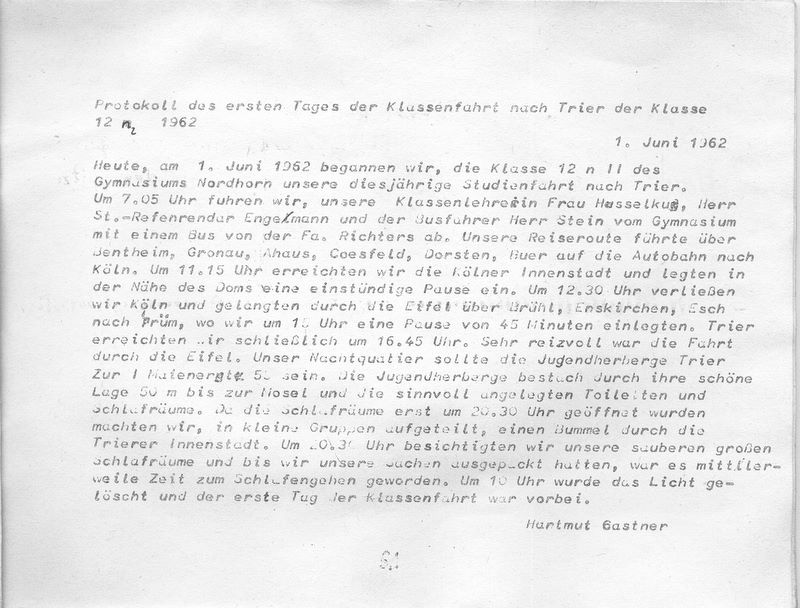 Protokoll des ersten Tages der Klassenfahrt nach Trier der Klasse
12 n2 1962
1. Juni 1962
Heute, am 1. Juni 1962 begannen wir, die Klasse 12 n II des
Gymnasiums Nordhorn unsere diesjährige Studienfahrt nach Trier.
Um 7.05 Uhr fuhren wir, unsere Klassenlehrerin Frau Hasselkus, Herr
St.-Refenrendar Engelmann und der Busfahrer Herr Stein vom Gymnasium
mit einem Bus von der Fa. Richters ab. Unsere Reiseroute führte über
Bentheim, Gronau, Ahaus, Coesfeld, Dorsten, Buer auf die Autobahn nach
Köln. Um 11.15 Uhr erreichten wir die Kölner Innenstadt und legten in
der Nähe des Doms eine einstündige Pause ein. Um 12.30 Uhr verließen
wir Köln und gelangten durch die Eifel über Brühl, Enskirchen, Esch
nach Prüm, wo wir um 15 Uhr eine Pause von 45 Minuten einlegten. Trier
erreichten wir schließlich um 16.45 Uhr. Sehr reizvoll war die Fahrt
durch die Eifel. Unser Nachtquatier sollte die Jugendherberge Trier
Zur 1 sein. Die Jugendherberge bestach durch ihre schöne
Lage 50 m bis zur Mosel und die sinnvoll angelegten Toiletten und
Schlafräume. Da die Schlafräume erst um 20.30 Uhr geöffnet wurden
machten wir, in kleine Gruppen aufgeteilt, einen Bummel durch die
Trierer Innenstadt. Um 20.30 Uhr besichtigten wir unsere sauberen großen
Schlafräume und bis wir unsere Sachen ausgepackt hatten, war es mittler=
weile Zeit zum Schlafengehen geworden. Um 10 Uhr wurde das Licht ge=
löscht und der erste Tag der Klassenfahrt war vorbei.
Hartmut Gastner